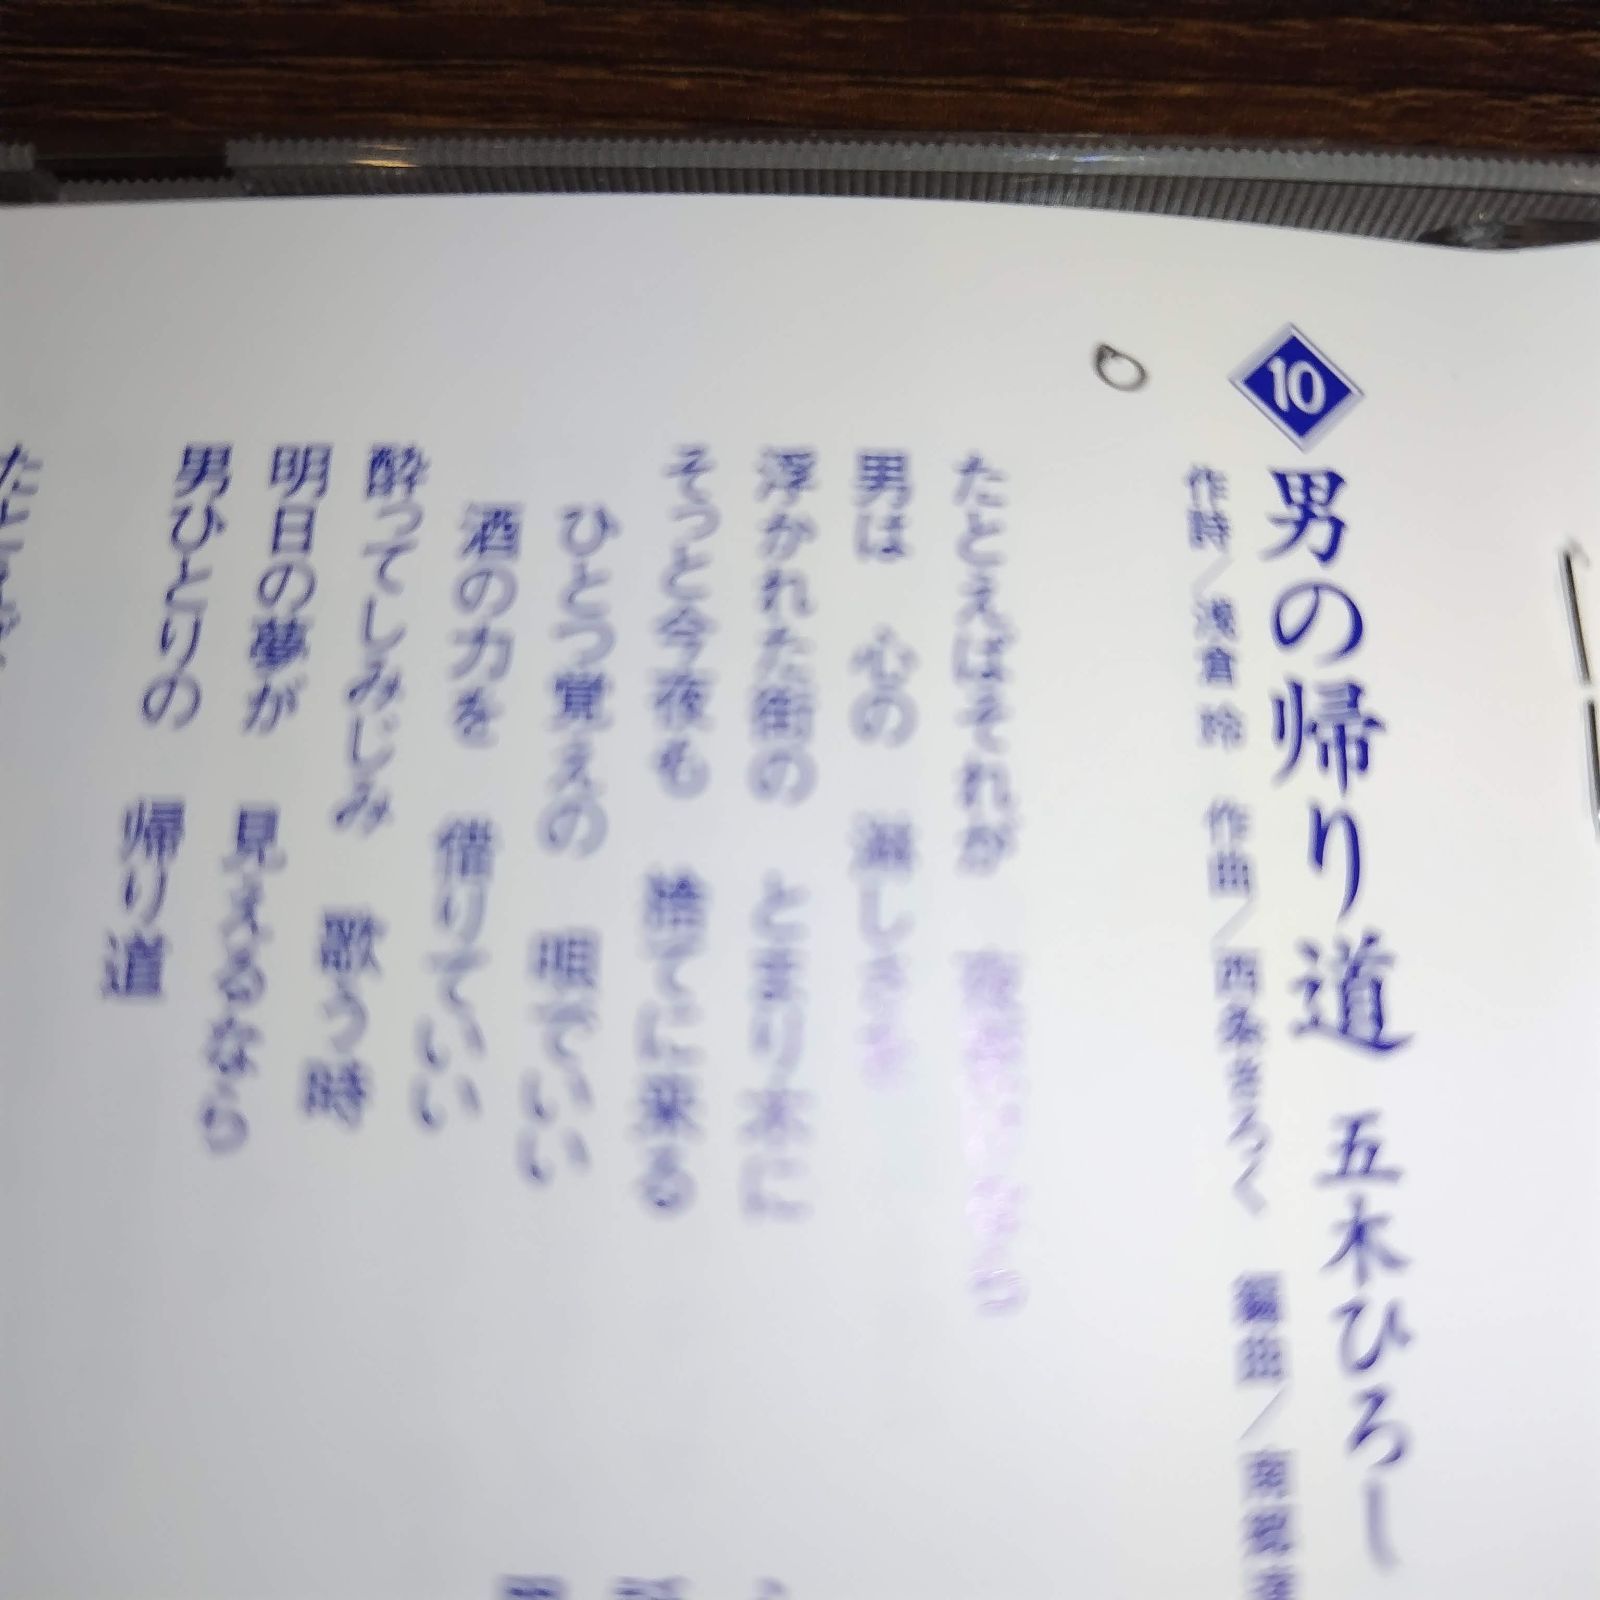 10 男の帰り道 五木ひろし
作詩/浅倉 玲 作曲/西条きろく 編曲/南郷
たとえばそれが
男は 心の 淋しさを
浮かれた街の とまり木に
そっと今夜も 捨てに来る
ひとつ覚えの 唄でいい
酒の力を 借りていい
酔ってしみじみ 歌う時
明日の夢が 見えるなら
男ひとりの 帰り道